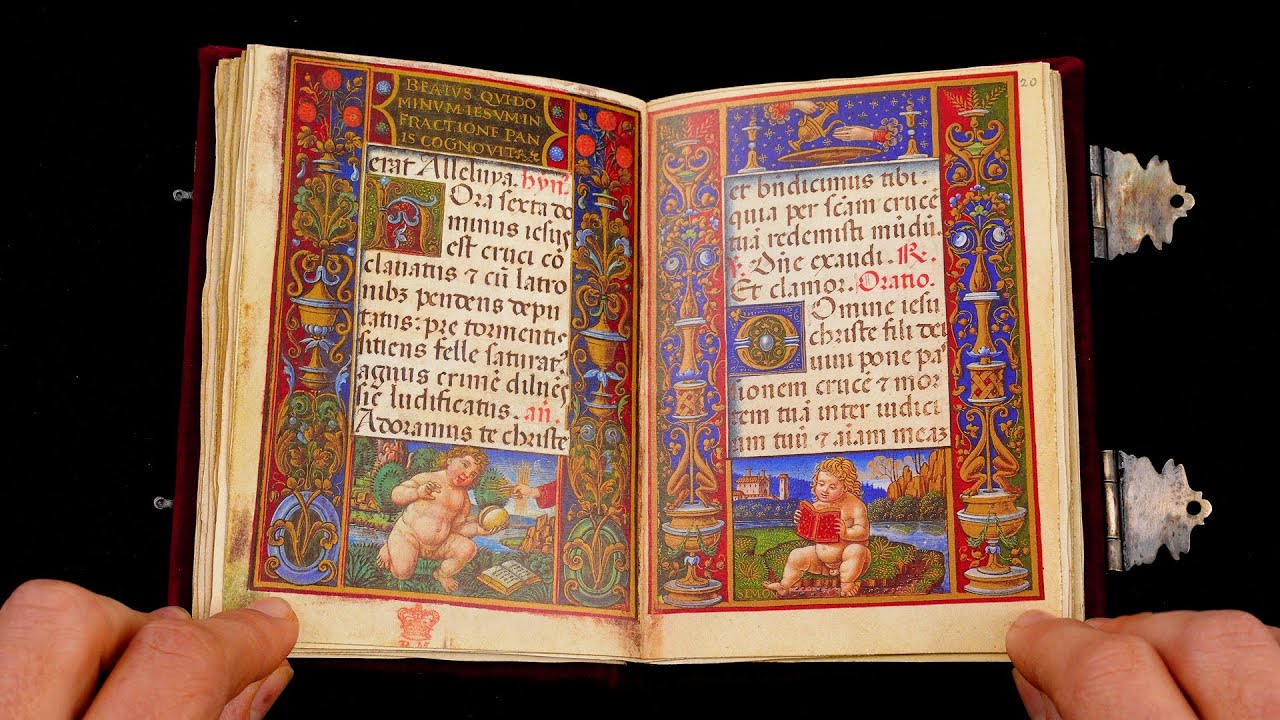 BEATVS QVI DO
MINVM IESVM IN
FRACTIONE PAN
IS COGNOVIT
erat Alleluya. hyn̄.
Hora sexta do
minus iesus
est cruci cō
clauatus & cū latro
nibz pendens depu
tatus: pre tormentis
sitiens felle saturat᾽
agnus crimē diluēs
sic ludificatus. an̄.
Adoramus te christe
20
et bn̄dicimus tibi.
quia per scām crucē
tuā redemisti mūdū.
v. Dn̄e exaudi. R.
Et clamor. Oratio.
Domine iesu
christe fili dei
uiui pone pas
sionem crucē & mor
tem tuā inter iudici
um tuū & aīam meaz